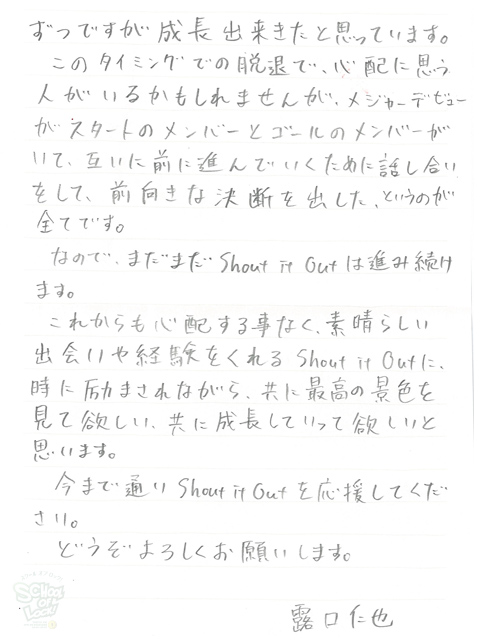 ずつですが成長出来きたと思っています。
このタイミングでの脱退で、心配に思う
人がいるかもしれませんが、メジャーデビュー
がスタートのメンバーとゴールのメンバーが
いて、互いに前に進んでいくために話し合い
をして、前向きな決断を出した、というのが
全てです。
なので、まだまだShout it Outは進み続け
ます。
これからも心配する事なく、素晴らしい
出会いや経験をくれるShout it Outに、
時に励まされながら、共に最高の景色を
見て欲しい、共に成長していって欲しいと
思います。
今まで通りShout it Outを応援してくだ
さい。
どうぞよろしくお願いします。
露口仁也
SCHOOL
OF
LOCK!